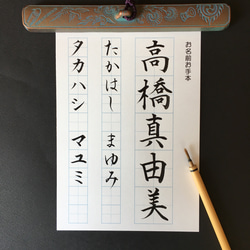 お名前お手本
高橋真由美
たかはし まゆみ
タカハシ マユミ